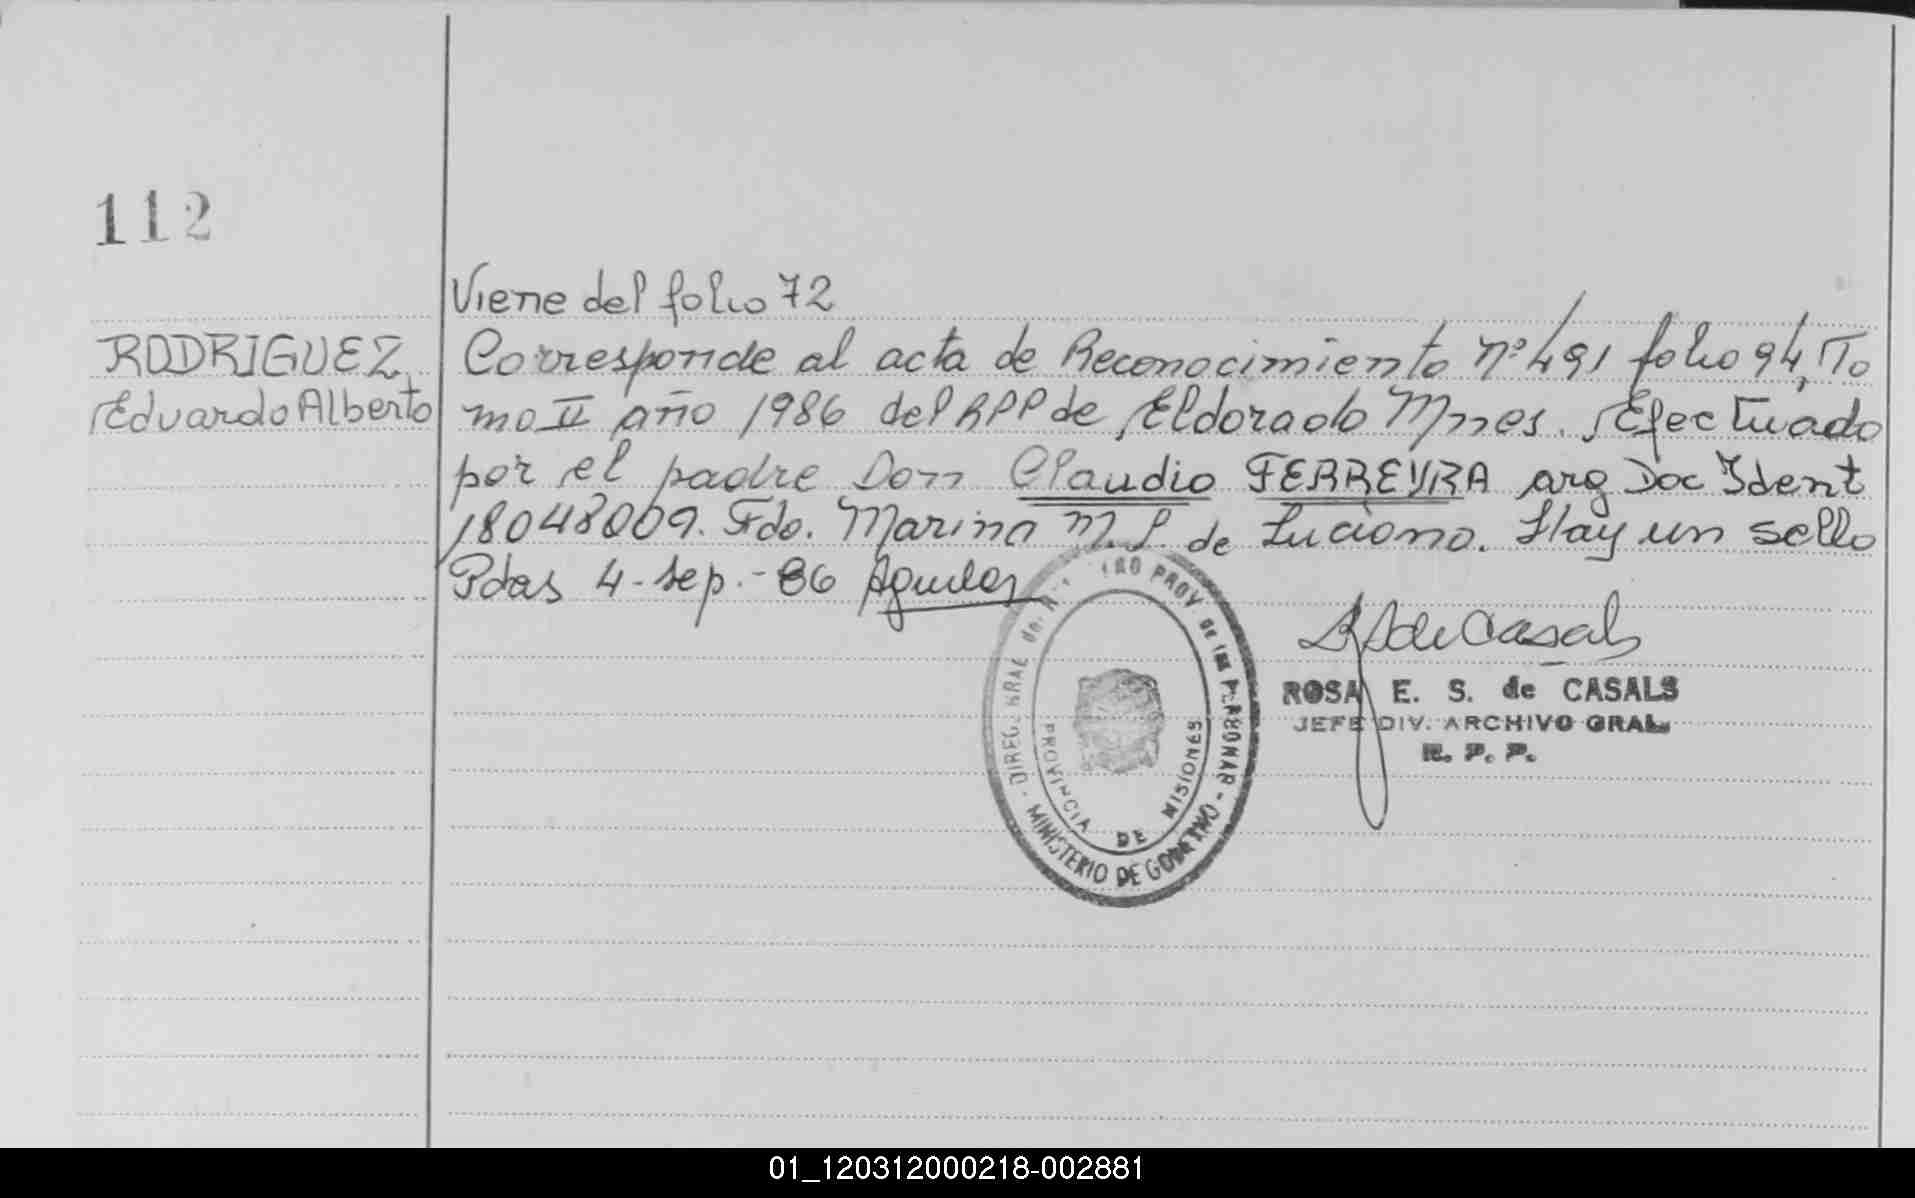 112
Viene del folio 72
RODRIGUEZ
Eduardo Alberto
Corresponde al acta de Reconocimiento Nº 491 folio 94, To
mo II año 1986 del RPP de Eldorado Mnes. Efectuado
por el padre Don Claudio FERREYRA arg Doc Ident
18048009. Fdo. Marina M. L. de Luciano. Hay un sello
Pdas 4-sep.-86 Aguilar
R S de Casals
ROSA E. S. de CASALS
JEFE DIV. ARCHIVO GRAL.
R. P. P.
PROV de las PERSONAS
MINISTERIO DE GOBIERNO
PROVINCIA DE MISIONES
01_120312000218-002881